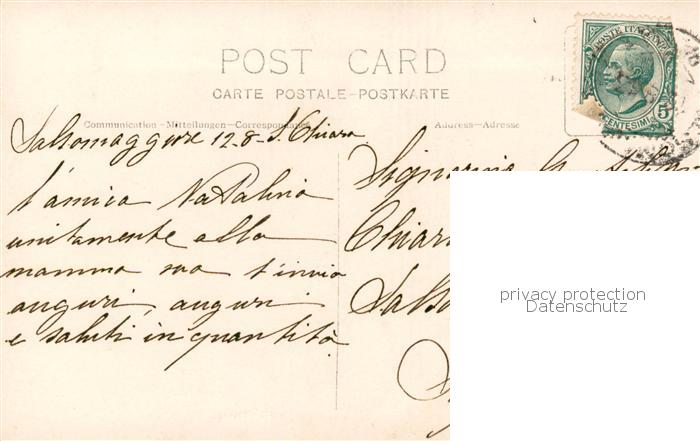 POST CARD
CARTE POSTALE-POSTKARTE
Communication - Mitteilungen - Correspondance
Address-Adresse
POSTE ITALIANE
CENTESIMI 5
Salsomaggiore 12-8- S. Chiara
L'amica Natalina
unitamente alla
mamma sua t'invia
auguri, auguri
e saluti in quantità
Signorina G.
Chiar
Salso
privacy protection
Datenschutz